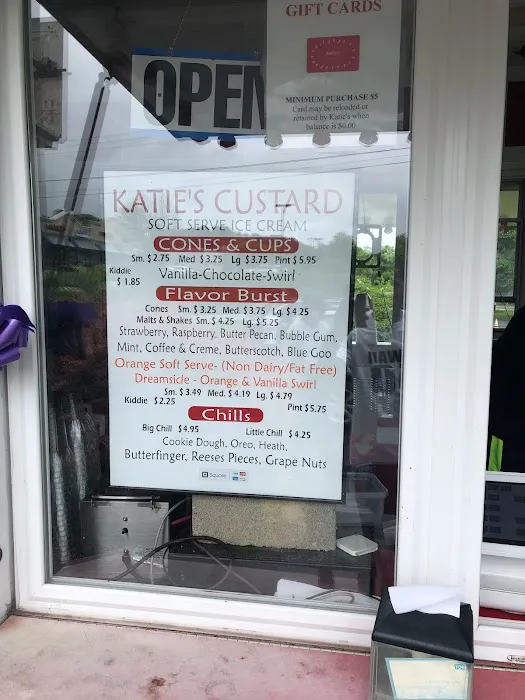 GIFT CARDS
OPEN
MINIMUM PURCHASE $5
Card may be reloaded or
retained by Katie's when
balance is $0.00
KATIE'S CUSTARD
SOFT SERVE ICE CREAM
CONES & CUPS
Sm. $2.75 Med $3.25 Lg $3.75 Pint $5.95
Kiddie
$1.85
Vanilla-Chocolate-Swirl
Flavor Burst
Cones Sm. $3.25 Med. $3.75 Lg. $4.25
Malts & Shakes Sm. $4.25 Lg. $5.25
Strawberry, Raspberry, Butter Pecan, Bubble Gum,
Mint, Coffee & Creme, Butterscotch, Blue Goo
Orange Soft Serve- (Non Dairy/Fat Free)
Dreamsicle - Orange & Vanilla Swirl
Sm. $3.49 Med. $4.19 Lg. $4.79
Kiddie $2.25
Pint $5.75
Chills
Big Chill $4.95 Little Chill $4.25
Cookie Dough, Oreo, Heath,
Butterfinger, Reeses Pieces, Grape Nuts
Square